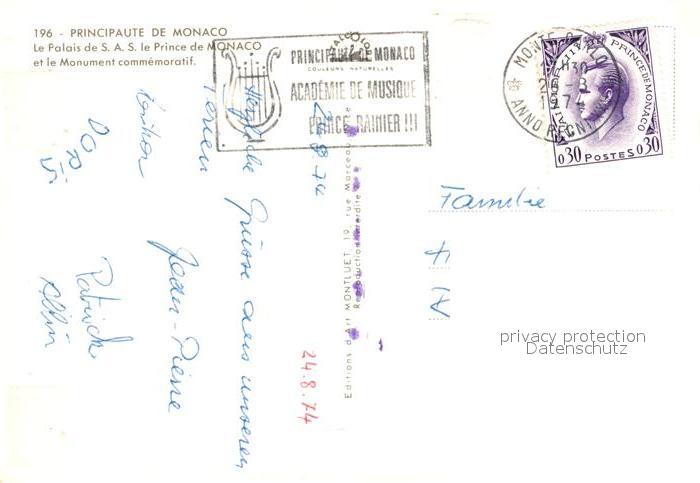 196 - PRINCIPAUTE DE MONACO
Le Palais de S. A. S. le Prince de MONACO
et le Monument commémoratif.
PRINCIPAUTÉ DE MONACO
COULEURS NATURELLES
ACADÉMIE DE MUSIQUE
PRINCE RAINIER III
MONTE-CARLO
1974
RAINIER III PRINCE DE MONACO
0,30 POSTES 0,30
24.8.74
Herzliche Grüsse aus unseren
Ferien
Jean-Pierre
Patrick
Albin
Doris
Editions d'Art MONTLUET, 19, rue Marceau
Reproduction interdite
24.8.74
Familie
privacy protection
Datenschutz